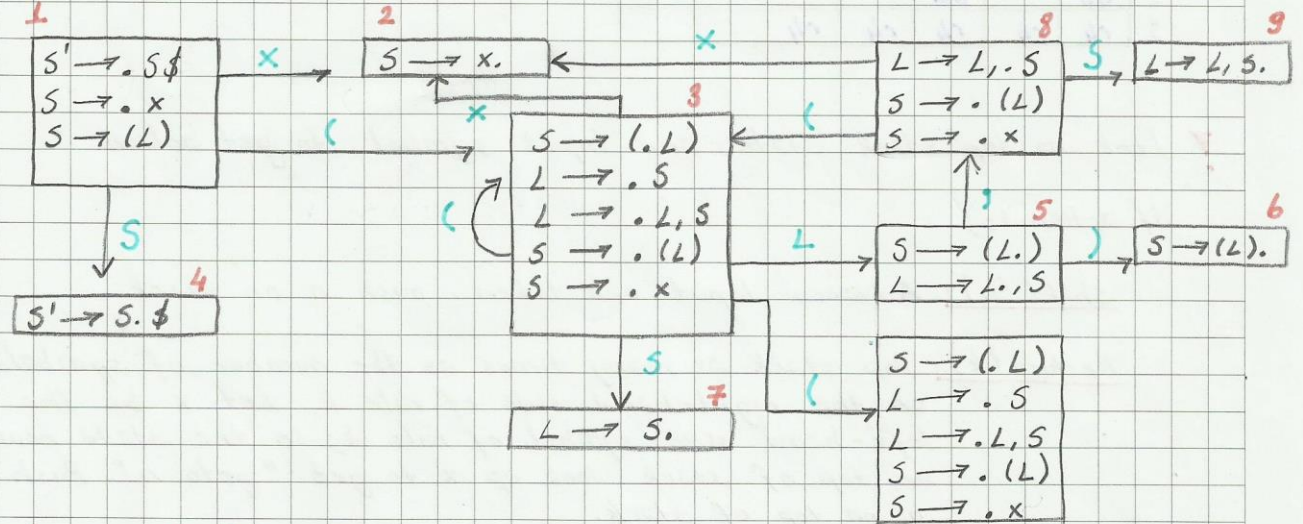 1
S' → . S $
S → . x
S → (L)
x
(
S
4
S' → S. $
2
S → x.
x
x
3
S → (.L)
L → . S
L → . L, S
S → . (L)
S → . x
(
L
S
(
7
L → S.
8
L → L, . S
S → . (L)
S → . x
(
S
9
L → L, S.
,
5
S → (L.)
L → L., S
)
6
S → (L).
S → (. L)
L → . S
L → . L, S
S → . (L)
S → . x